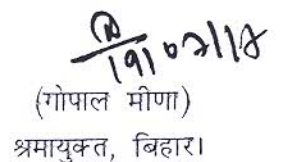 19/07/18
(गोपाल मीणा)
श्रमायुक्त, बिहार।